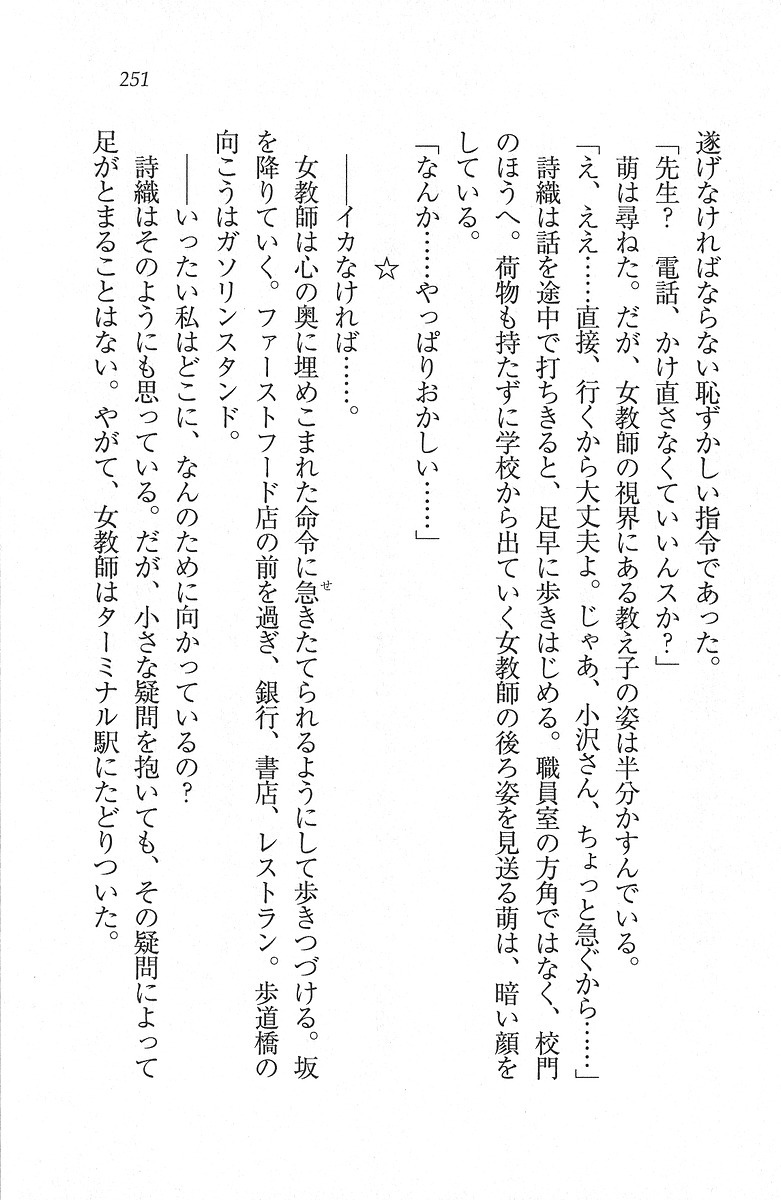 251
遂げなければならない恥ずかしい指令であった。
「先生？　電話、かけ直さなくていいんスか？」
萌は尋ねた。だが、女教師の視界にある教え子の姿は半分かすんでいる。
「え、ええ……直接、行くから大丈夫よ。じゃあ、小沢さん、ちょっと急ぐから……」
詩織は話を途中で打ちきると、足早に歩きはじめる。職員室の方角ではなく、校門
のほうへ。荷物も持たずに学校から出ていく女教師の後ろ姿を見送る萌は、暗い顔を
している。
「なんか……やっぱりおかしい……」
☆
――イカなければ……。
女教師は心の奥に埋めこまれた命令に急きたてられるようにして歩きつづける。坂
せ
を降りていく。ファーストフード店の前を過ぎ、銀行、書店、レストラン。歩道橋の
向こうはガソリンスタンド。
――いったい私はどこに、なんのために向かっているの？
詩織はそのようにも思っている。だが、小さな疑問を抱いても、その疑問によって
足がとまることはない。やがて、女教師はターミナル駅にたどりついた。